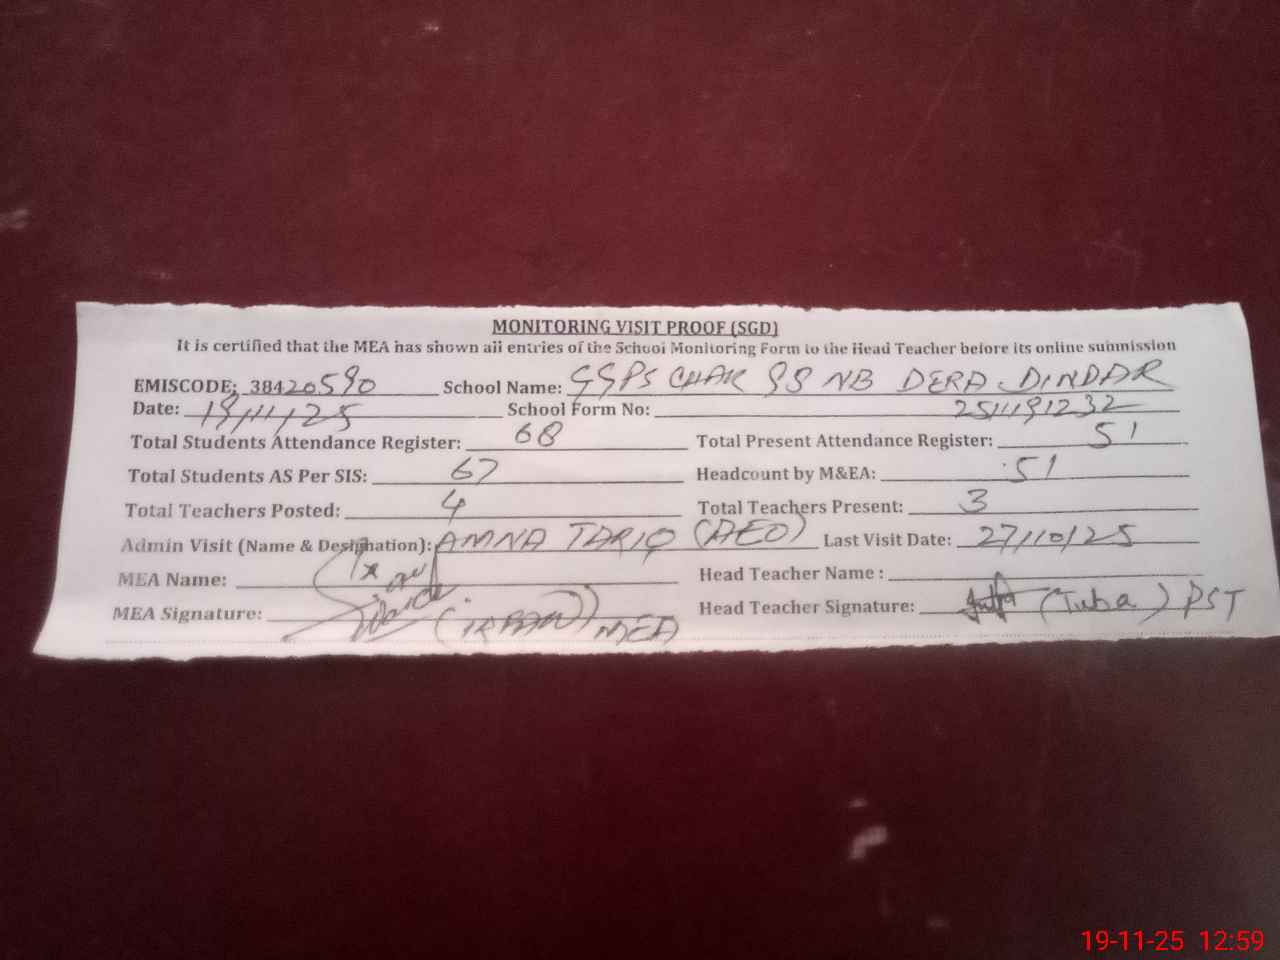 MONITORING VISIT PROOF (SGD)
It is certified that the MEA has shown all entries of the School Monitoring Form to the Head Teacher before its online submission
EMISCODE: 38420590 School Name: GGPS CHAK 99 NB DERA DINDAR
Date: 19/11/25 School Form No: 2511191232
Total Students Attendance Register: 68 Total Present Attendance Register: 51
Total Students AS Per SIS: 67 Headcount by M&EA: 51
Total Teachers Posted: 4 Total Teachers Present: 3
Admin Visit (Name & Designation): AMNA TARIQ (AEO) Last Visit Date: 27/10/25
MEA Name: Head Teacher Name :
MEA Signature: (IRFAN) MEA Head Teacher Signature: (Tuba) PST
19-11-25 12:59